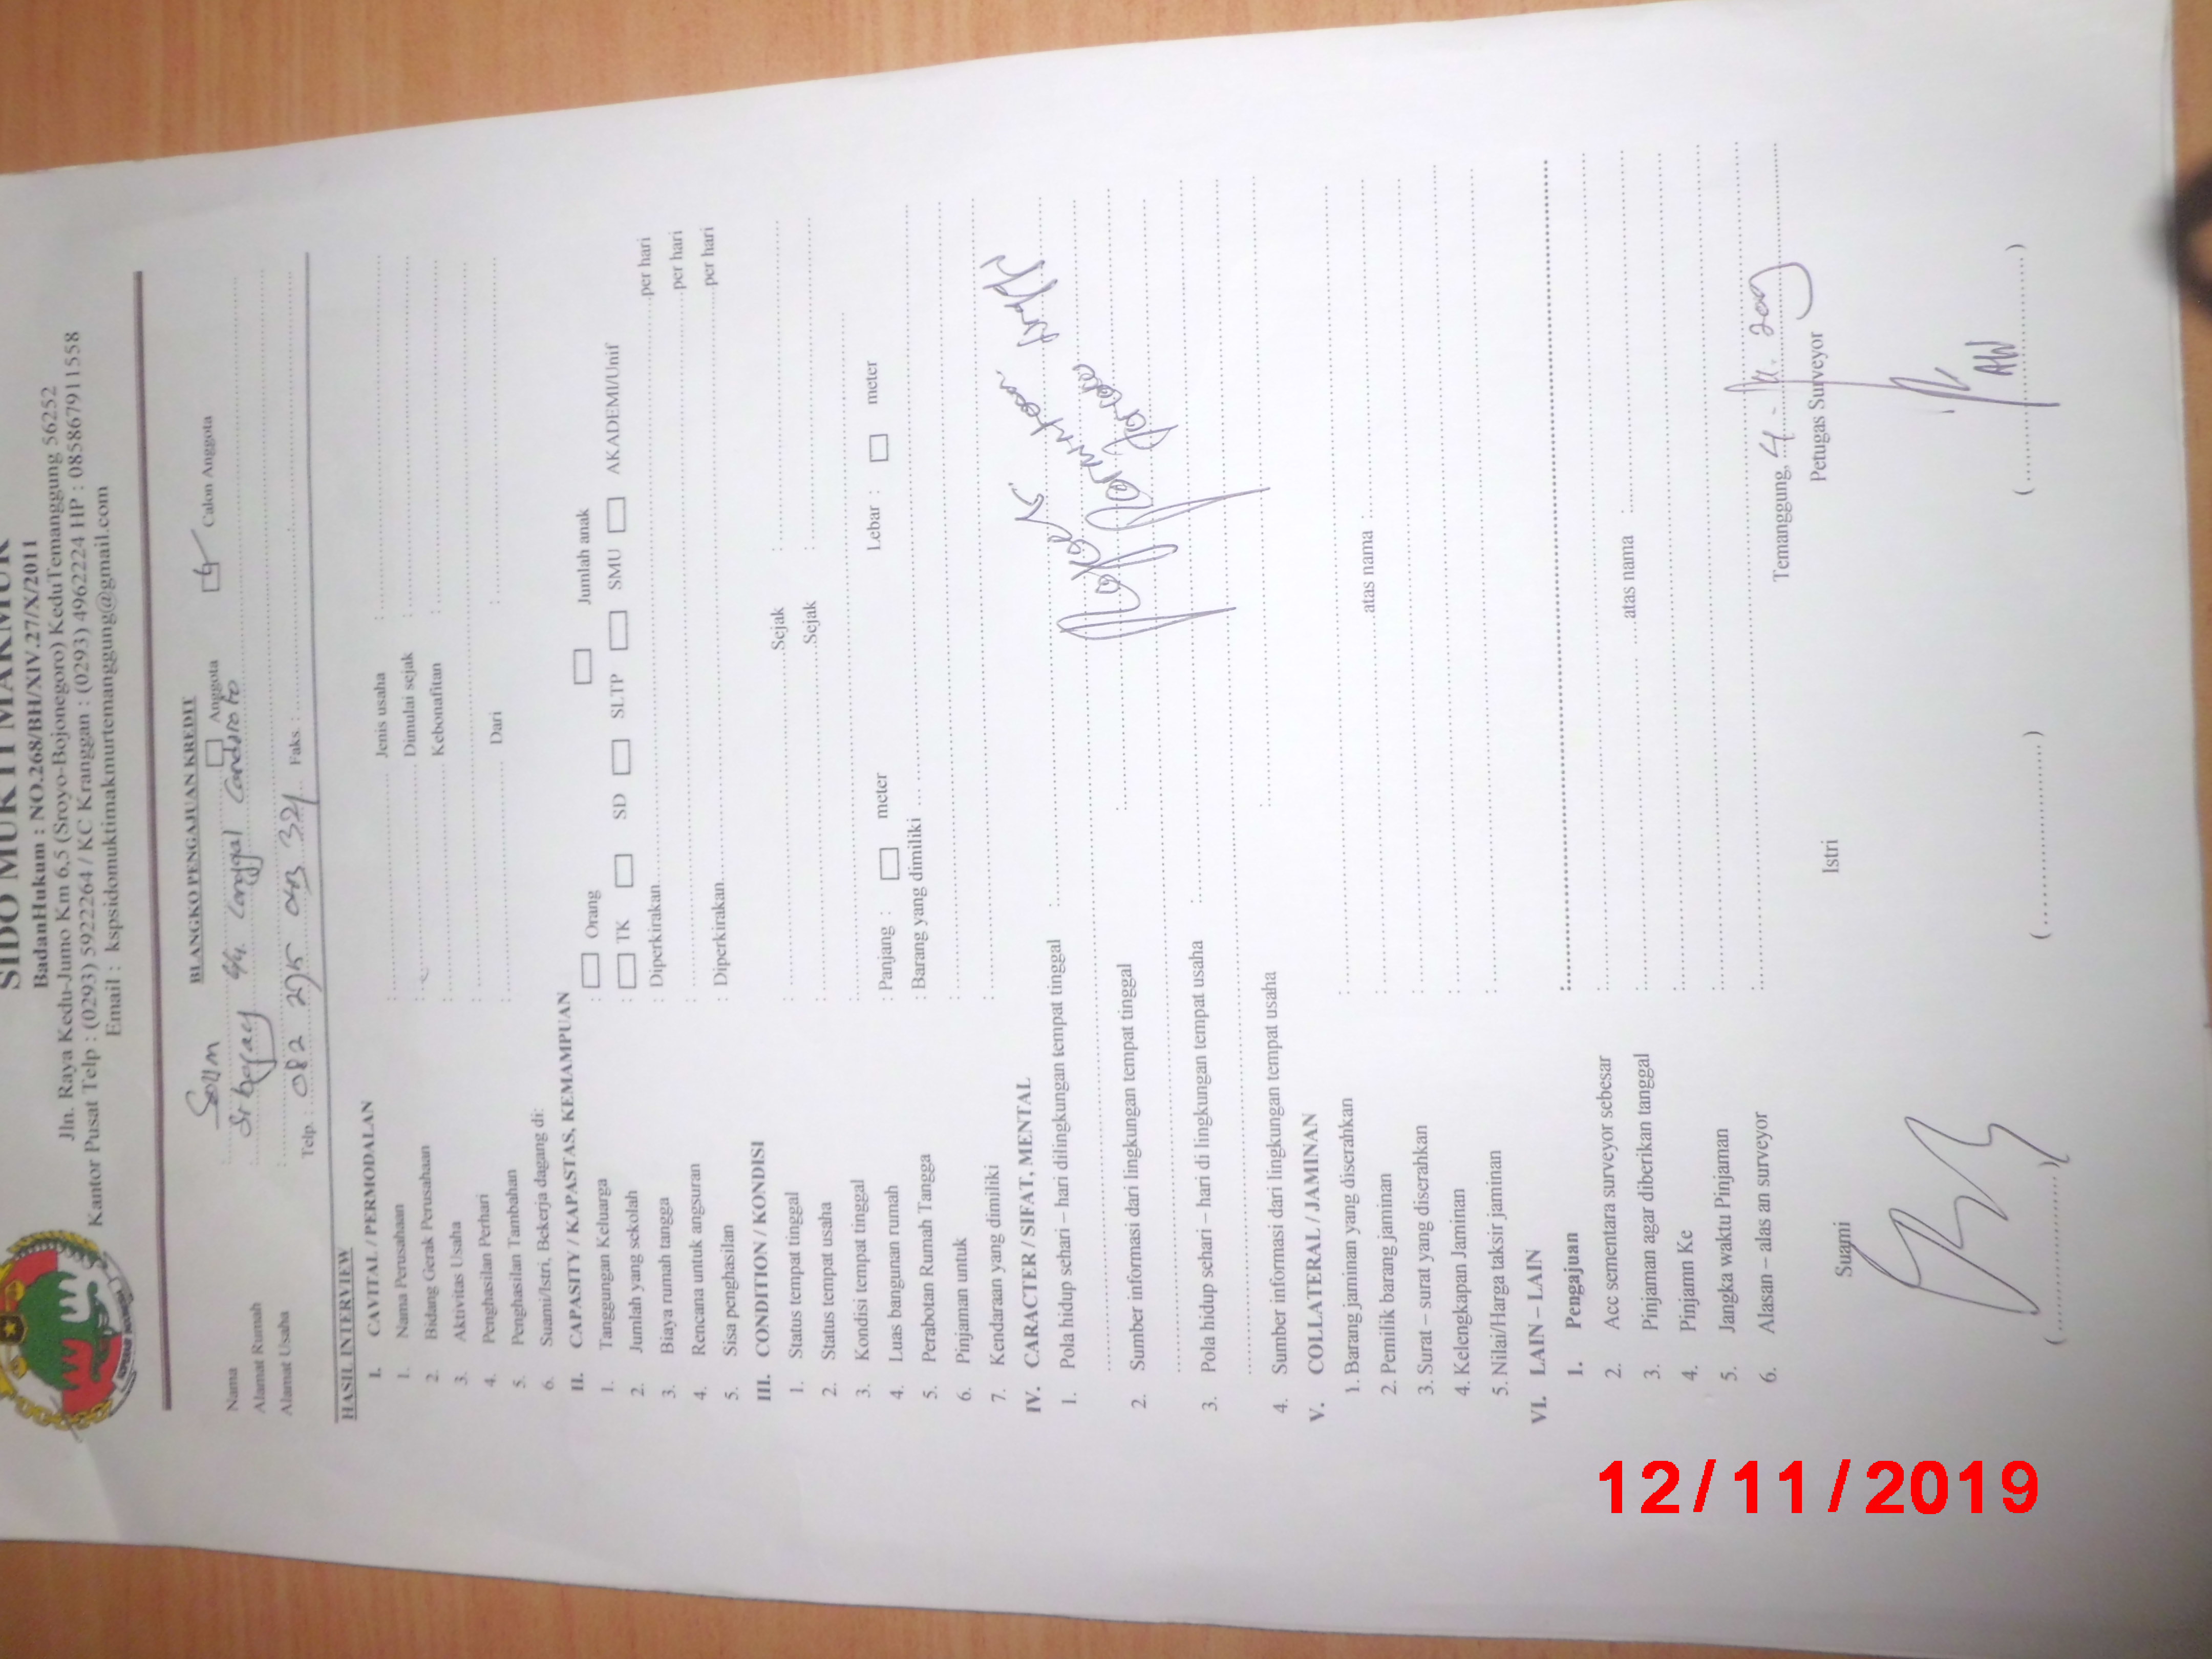 SIDO MUKTI MAKMUR
BadanHukum : NO.268/BH/XIV.27/X/2011
Jln. Raya Kedu-Jumo Km 6,5 (Sroyo-Bojonegoro) KeduTemanggung 56252
Kantor Pusat Telp : (0293) 5922264 / KC Kranggan : (0293) 4962224 HP : 085867911558
Email : kspsidomuktimakmurtemanggung@gmail.com
BLANGKO PENGAJUAN KREDIT
Anggota Calon Anggota
Nama
Alamat Rumah
Alamat Usaha
Telp. : 082 Faks. :
HASIL INTERVIEW
I. CAVITAL / PERMODALAN
1. Nama Perusahaan : Jenis usaha :
2. Bidang Gerak Perusahaan : Dimulai sejak :
3. Aktivitas Usaha : Kebonafitan :
4. Penghasilan Perhari :
5. Penghasilan Tambahan : Dari :
6. Suami/Istri, Bekerja dagang di:
II. CAPASITY / KAPASTAS, KEMAMPUAN
1. Tanggungan Keluarga : Orang Jumlah anak
2. Jumlah yang sekolah : TK SD SLTP SMU AKADEMI/Unif
3. Biaya rumah tangga : Diperkirakan per hari
4. Rencana untuk angsuran : per hari
5. Sisa penghasilan : Diperkirakan per hari
III. CONDITION / KONDISI
1. Status tempat tinggal : Sejak :
2. Status tempat usaha : Sejak :
3. Kondisi tempat tinggal :
4. Luas bangunan rumah : Panjang : meter Lebar : meter
5. Perabotan Rumah Tangga : Barang yang dimiliki
6. Pinjaman untuk :
7. Kendaraan yang dimiliki :
IV. CARACTER / SIFAT, MENTAL
1. Pola hidup sehari – hari dilingkungan tempat tinggal :
2. Sumber informasi dari lingkungan tempat tinggal :
3. Pola hidup sehari – hari di lingkungan tempat usaha :
4. Sumber informasi dari lingkungan tempat usaha :
V. COLLATERAL / JAMINAN
1. Barang jaminan yang diserahkan :
2. Pemilik barang jaminan : atas nama :
3. Surat – surat yang diserahkan :
4. Kelengkapan Jaminan :
5. Nilai/Harga taksir jaminan :
VI. LAIN – LAIN
1. Pengajuan :
2. Acc sementara surveyor sebesar :
3. Pinjaman agar diberikan tanggal : atas nama :
4. Pinjamn Ke :
5. Jangka waktu Pinjaman :
6. Alasan – alas an surveyor :
Temanggung,
Suami Istri Petugas Surveyor
12/11/2019